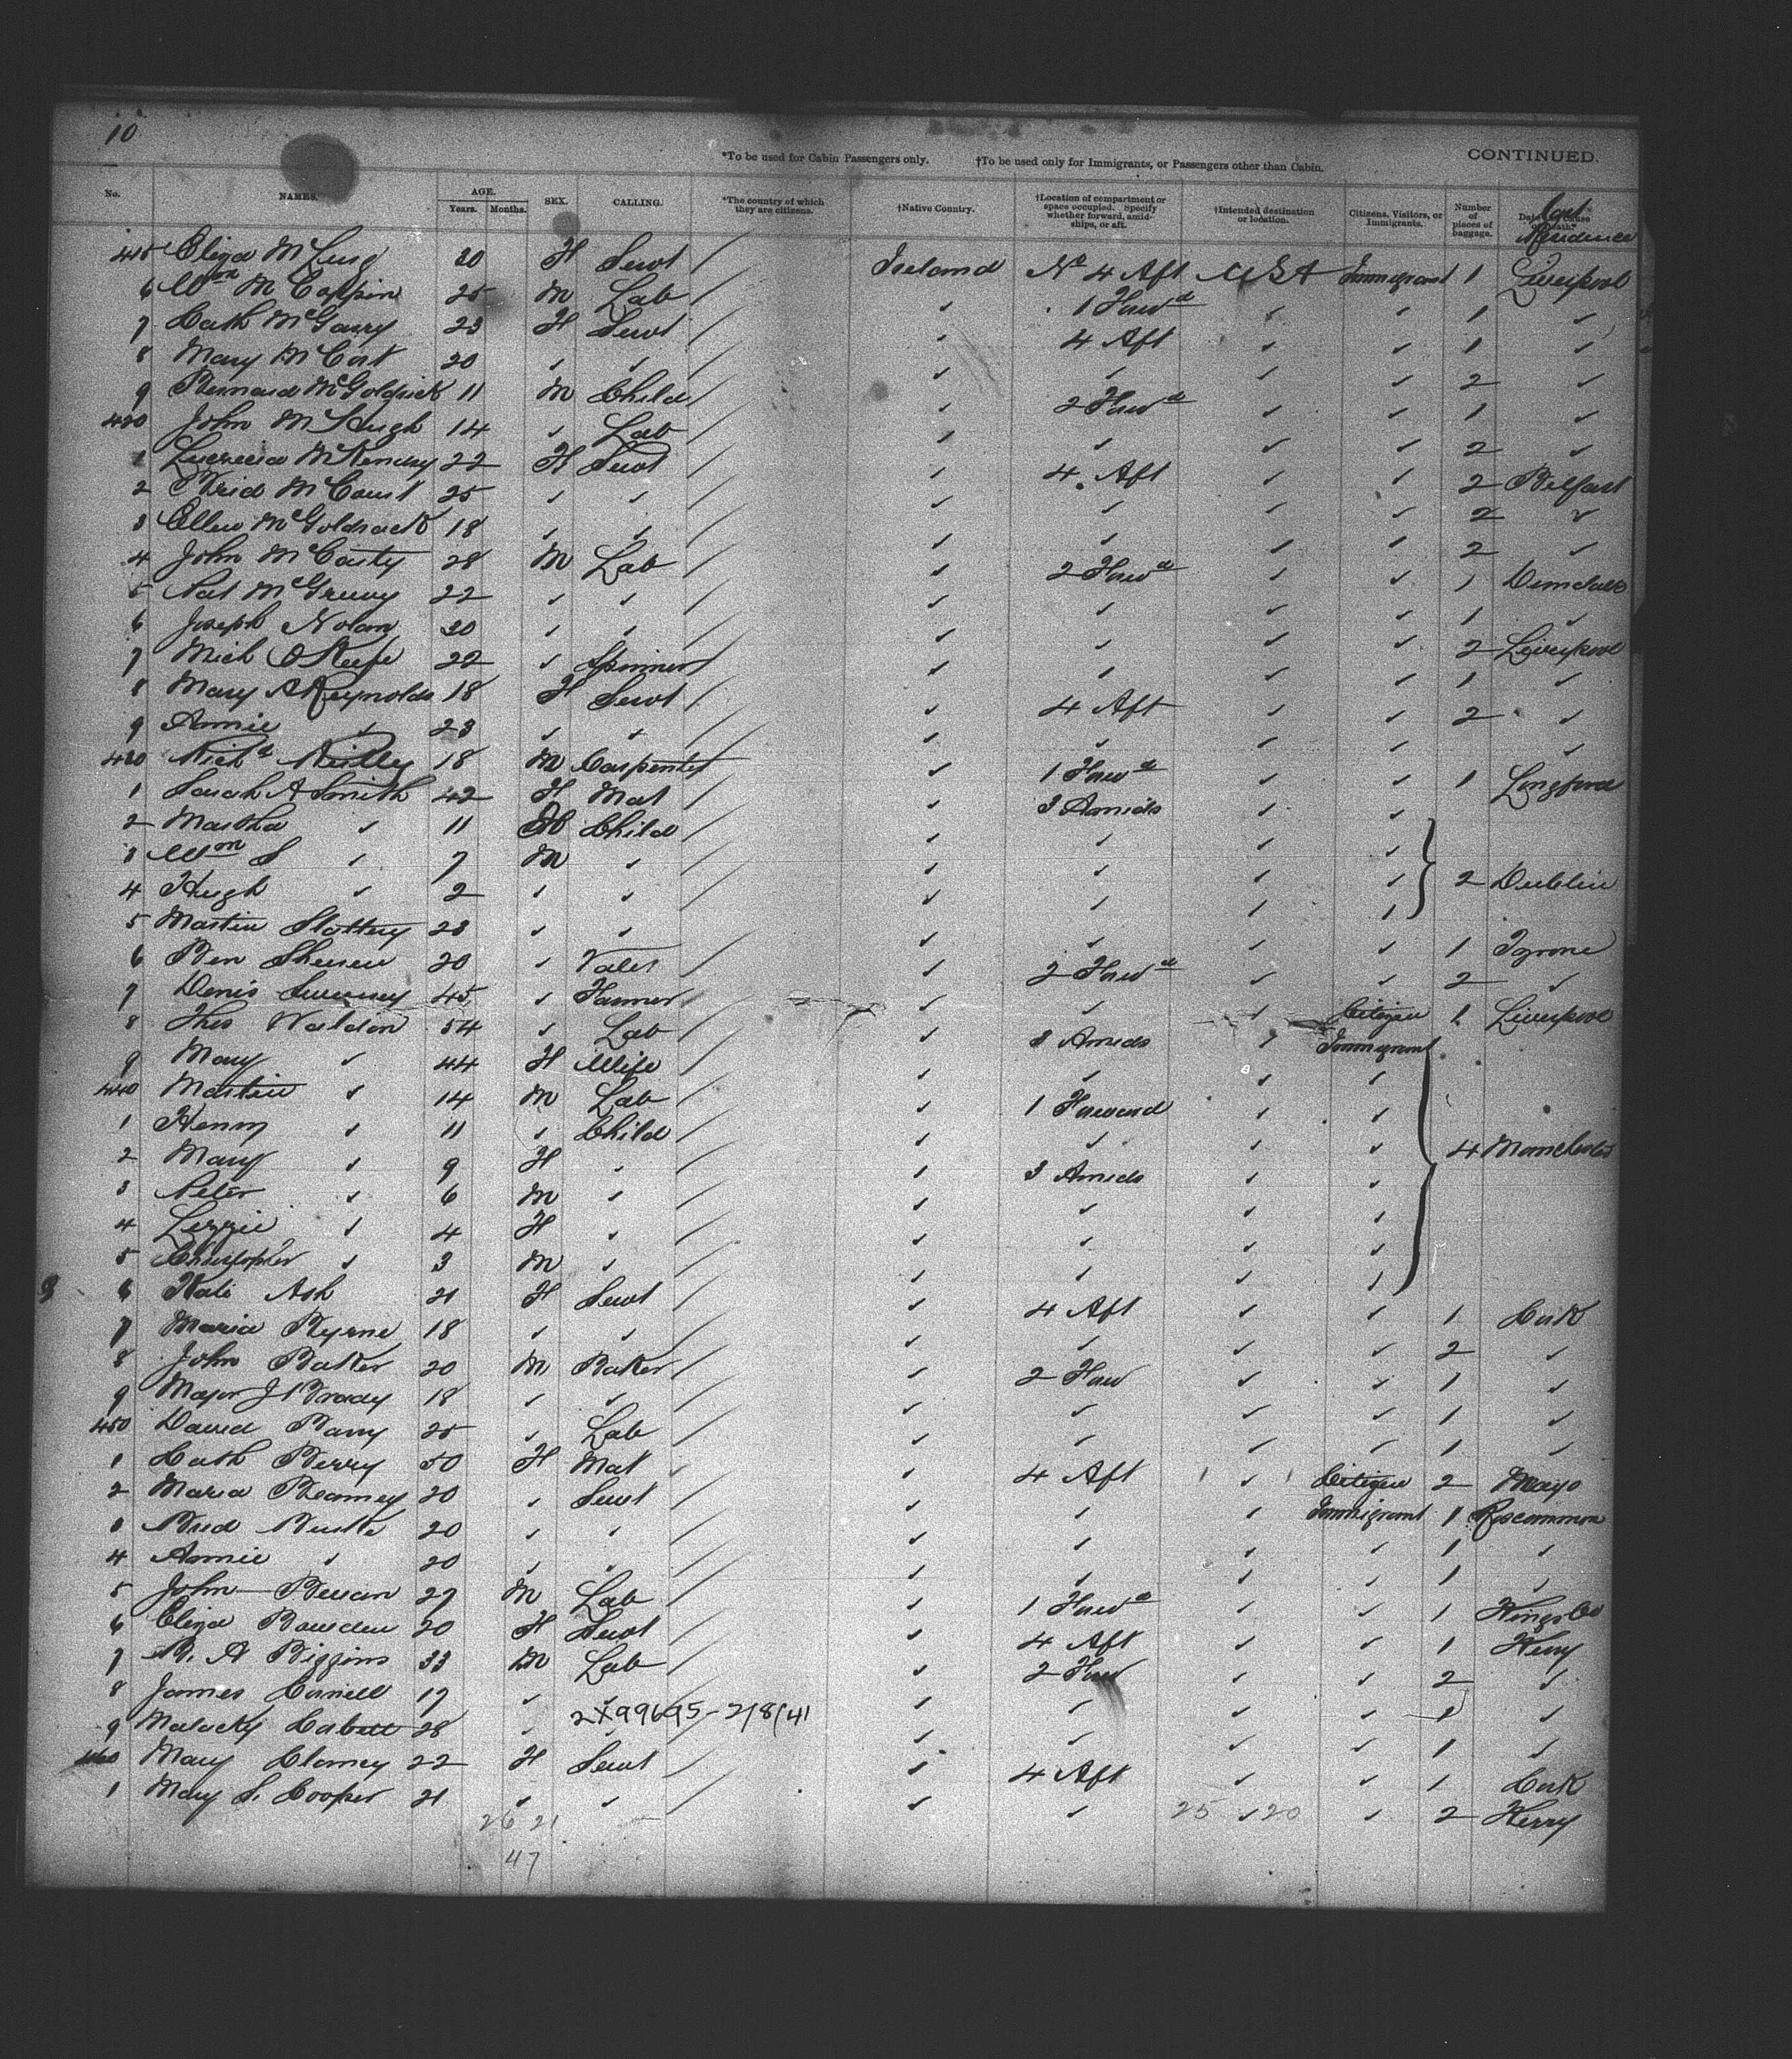 10
*To be used for Cabin Passengers only. †To be used only for Immigrants, or Passengers other than Cabin. CONTINUED.
No. NAMES. AGE. Years. Months. SEX. CALLING. *The country of which they are citizens. †Native Country. †Location of compartment or space occupied. Specify whether forward, amidships, or aft. †Intended destination or location. Citizens, Visitors, or Immigrants. Number of pieces of baggage. Last Residence
415 Eliza 20 F Servt Ireland No 4 Aft USA Immigrant 1 Liverpool
6 Wm 25 M Lab 1 Forwd 1
7 Cath McGarry 23 F Servt 4 Aft 1
8 Mary McCort 20 2
9 Bernard McGoldrick 11 M Child 2 Forwd 1
420 John McHugh 14 Lab 2
1 Lucrecia McKendry 22 F Servt 4 Aft 2 Belfast
2 Brid 25 2
3 Ellen 18 2
4 John McCarty 28 M Lab 2 Forwd 1 Dundalk
5 Pat 22 1
6 Joseph Nolan 20 2 Liverpool
7 Mich O'Keefe 22 Spinner 1
8 Mary A Reynolds 18 F Servt 4 Aft 2
9 Annie 23
430 Richd Reilly 18 M Carpenter 1 Forwd 1 Longford
1 Sarah A Smith 42 F Mat 3 Amids
2 Martha 11 Child
3 Wm S 7 M
4 Hugh 2 2 Dublin
5 Martin Slattery 23 1 Tyrone
6 Ben 20 Valet 2 Forwd 2
7 Denis Sweeney 45 Farmer Citizen 1 Liverpool
8 Thos Waldon 54 Lab 3 Amids Immigrant
9 Mary 44 F Wife
440 Martin 14 M Lab 1 Forward
1 Henry 11 Child
2 Mary 9 F 3 Amids 4 Manchester
3 Peter 6 M
4 Lizzie 4 F
5 Christopher 3 M
6 Kate Ash 21 F Servt 4 Aft 1 Cork
7 Maria Byrne 18 2
8 John Baker 20 M Baker 2 Forw 1
9 Major J Brady 18 1
450 David Barry 25 Lab 1
1 Cath Berry 50 F Mat 4 Aft Citizen 2 Mayo
2 Maria 20 Servt Immigrant 1 Roscommon
3 Brid Burke 20 1
4 Annie 20 1
5 John 27 M Lab 1 Forwd 1 Kings Co
6 Eliza Bowden 20 F Servt 4 Aft 1 Kerry
7 Biggins 33 M Lab 2 Forw 2
8 James 17 1
2X99695-2/8/41
9 Malacky 28 1
460 Mary Clancy 22 F Servt 4 Aft 1 Cork
1 Mary S. Cooper 21 2 Kerry
26 21 25 20
47